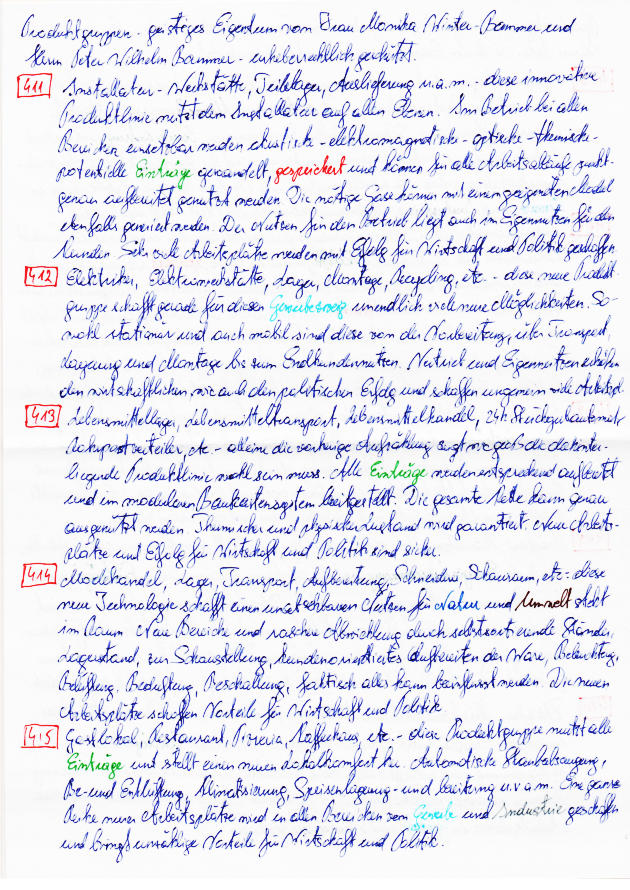 Produktgruppen - geistiges Eigentum von Frau Monika Winter-Bammer und
Herrn Peter Wilhelm Bammer - urheberrechtlich geschützt.
411 Installateur - Werkstätte, Teilelager, Auslieferung u.a.m. - diese innovative
Produktlinie nutzt dem Installateur auf allen Ebenen. Im Betrieb bei allen
Bereichen einsetzbar werden akustische - elektromagnetische - optische - thermische -
potentielle Einträge gewandelt, gespeichert und können für alle Arbeitsabläufe punkt-
genau aufbereitet genutzt werden. Die nötige Gase können mit einem geeigneten Modul
ebenfalls generiert werden. Der Nutzen für den Betrieb liegt auch im Eigennutzen für den
Kunden. Sehr viele Arbeitsplätze werden mit Erfolg für Wirtschaft und Politik geschaffen.
412 Elektriker, Elektrowerkstätte, Lager, Montage, Recycling, etc. - diese neue Produkt-
gruppe schafft gerade für diesen Gewerbezweig unendlich viele neue Möglichkeiten. So-
wohl stationär und auch mobil sind diese von der Vorbereitung, über Transport,
Lagerung und Montage bis zum Endkundennutzen. Vertrieb und Eigennutzen erhöhen
den wirtschaftlichen wie auch den politischen Erfolg und schaffen ungemein viele Arbeitspl.
413 Lebensmittellager, Lebensmitteltransport, Lebensmittelhandel, 24h Stückgutautomat,
verteiler, etc. - alleine die vorherige Aufzählung zeigt wie groß die dahinter-
liegende Produktlinie wohl sein muss. Alle Einträge werden entsprechend aufbereitet
und im modularen Baukastensystem bereitgestellt. Die gesamte Kette kann genau
ausgenützt werden. Thermischer und physischer Zustand wird garantiert. Neue Arbeits-
plätze und Erfolg für Wirtschaft und Politik sind sicher.
414 Modehandel, Lager, Transport, Aufbereitung, Schneiderei, Schauraum, etc. - diese
neue Technologie schafft einen unschätzbaren Nutzen für Natur und Umwelt steht
im Raum. Neue Bereiche und rasche Abwicklung durch selbstsortierende Ständer,
Lagerstand, zur Schaustellung, kundenorientiertes Aufbereiten der Ware, Beleuchtung,
Belüftung, Beduftung, Beschallung, faktisch alles kann beeinflusst werden. Die neuen
Arbeitsplätze schaffen Vorteile für Wirtschaft und Politik.
415 Gastlokal, Restaurant, Pizzeria, Kaffeehaus, etc. - diese Produktgruppe nutzt alle
Einträge und stellt einen neuen Lokalkomfort her. Automatische Staubabsaugung,
Be- und Entlüftung, Klimatisierung, Speisenlagerung - und bereitung u.v.a.m. Eine ganze
Reihe neuer Arbeitsplätze wird in allen Bereichen von Gewerbe und Industrie geschaffen
und bringt unzählige Vorteile für Wirtschaft und Politik.